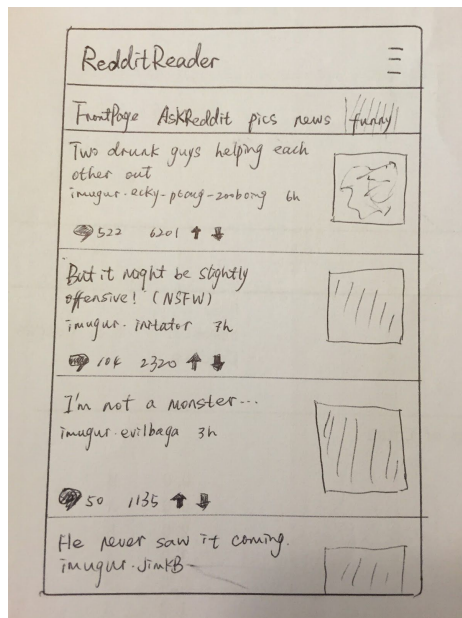 RedditReader
FrontPage AskReddit pics news funny
Two drunk guys helping each
other out
imugur. ecky-ptang-zooboing 6h
522 6201
But it might be slightly
offensive! (NSFW)
imugur. initator 7h
104 2320
I'm not a monster...
imugur. evilbaga 3h
50 1135
He never saw it coming.
imugur. JimKB